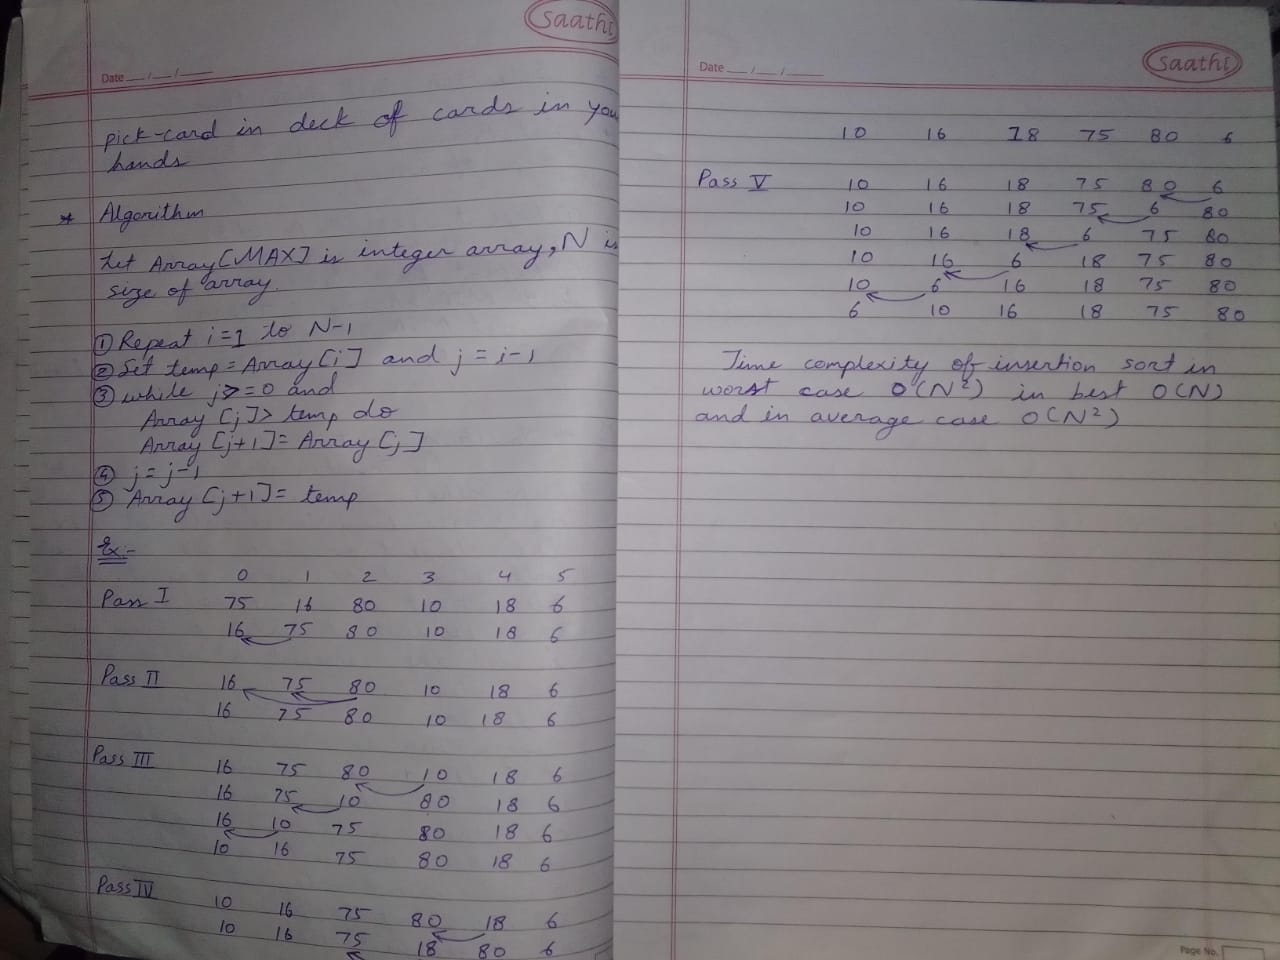 Saathi
Date __/__/____
pick-card in deck of cards in you
hands
* Algorithm
Let Array[MAX] is integer array, N is
size of array.
① Repeat i=1 to N-1
② Set temp = Array[i] and j = i-1
③ while j>=0 and
Array [j]> temp do
Array [j+1]= Array [j]
④ j= j-1
⑤ Array [j+1]= temp
Ex:-
0 1 2 3 4 5
Pass I 75 16 80 10 18 6
16 75 80 10 18 6
Pass II 16 75 80 10 18 6
16 75 80 10 18 6
Pass III 16 75 80 10 18 6
16 75 10 80 18 6
16 10 75 80 18 6
10 16 75 80 18 6
Pass IV 10 16 75 80 18 6
10 16 75 18 80 6
Saathi
Date __/__/____
10 16 18 75 80 6
Pass V 10 16 18 75 80 6
10 16 18 75 6 80
10 16 18 6 75 80
10 16 6 18 75 80
10 6 16 18 75 80
6 10 16 18 75 80
Time complexity of insertion sort in
worst case O(N²) in best O(N)
and in average case O(N²)
Page No.